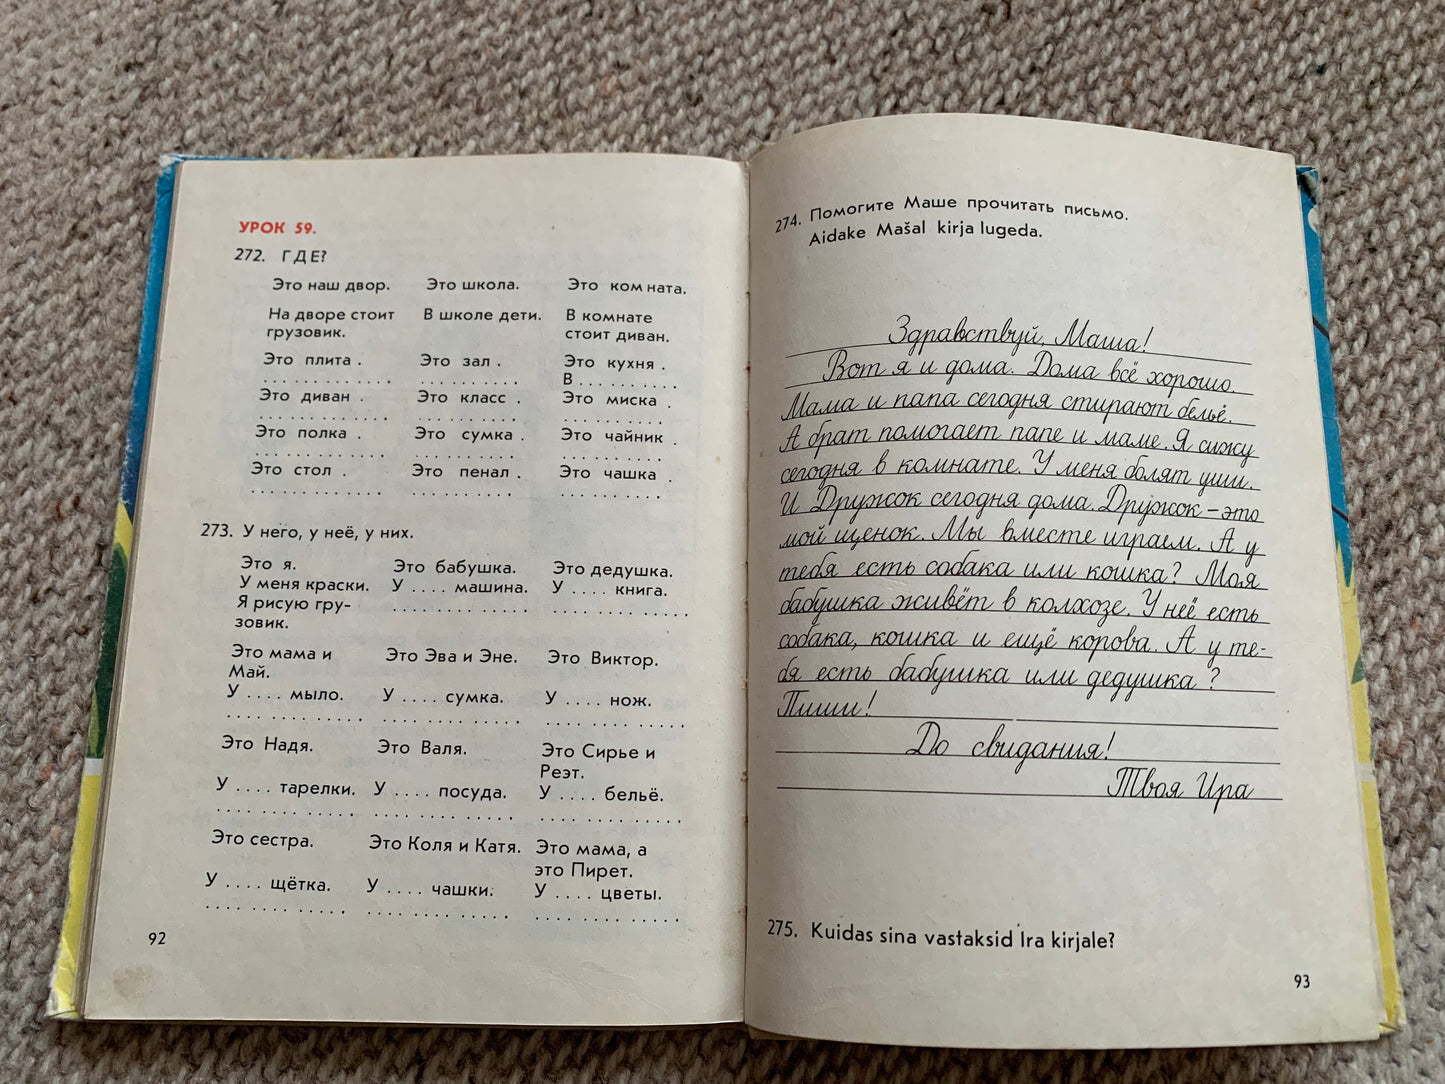 УРОК 59.
272. ГДЕ?
Это наш двор. Это школа. Это комната.
На дворе стоит В школе дети. В комнате
грузовик. стоит диван.
Это плита . Это зал . Это кухня .
. . . . . . . . . . . . . . . . . . . . . . . В . . . . . . . . . .
Это диван . Это класс . Это миска .
. . . . . . . . . . . . . . . . . . . . . . . . . . . . . . . . .
Это полка . Это сумка . Это чайник .
. . . . . . . . . . . . . . . . . . . . . . . . . . . . . . . . .
Это стол . Это пенал . Это чашка .
. . . . . . . . . . . . . . . . . . . . . . . . . . . . . . . . .
273. У него, у неё, у них.
Это я. Это бабушка. Это дедушка.
У меня краски. У . . . . машина. У . . . . книга.
Я рисую гру- . . . . . . . . . . . . . . . . . . . . . . . .
зовик.
Это мама и Это Эва и Эне. Это Виктор.
Май.
У . . . . мыло. У . . . . сумка. У . . . . нож.
. . . . . . . . . . . . . . . . . . . . . . . . . . . . . . . . . . . .
Это Надя. Это Валя. Это Сирье и
Реэт.
У . . . . тарелки. У . . . . посуда. У . . . . бельё.
. . . . . . . . . . . . . . . . . . . . . . . . . . . . . . . . . . . .
Это сестра. Это Коля и Катя. Это мама, а
это Пирет.
У . . . . щётка. У . . . . чашки. У . . . . цветы.
. . . . . . . . . . . . . . . . . . . . . . . . . . . . . . . . . . . .
92
274. Помогите Маше прочитать письмо.
Aidake Mašal kirja lugeda.
Здравствуй, Маша!
Вот я и дома. Дома всё хорошо.
Мама и папа сегодня стирают бельё.
А брат помогает папе и маме. Я сижу
сегодня в комнате. У меня болят уши.
И Дружок сегодня дома. Дружок – это
мой щенок. Мы вместе играем. А у
тебя есть собака или кошка? Моя
бабушка живёт в колхозе. У неё есть
собака, кошка и ещё корова. А у те-
бя есть бабушка или дедушка?
Пиши!
До свидания!
Твоя Ира
275. Kuidas sina vastaksid Ira kirjale?
93